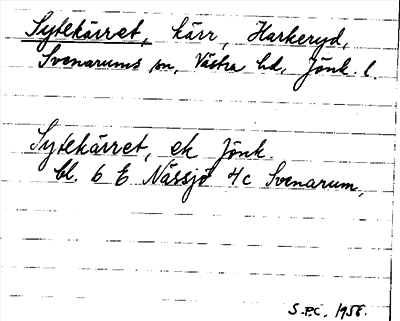 Sytekärret, kärr, Harkeryd,
Svenarums sn, Västra hd, Jönk. l.
Sytekärret, ek Jönk.
bl. 6 E Nässjö 4c Svenarum,
S.P.C. 1956.